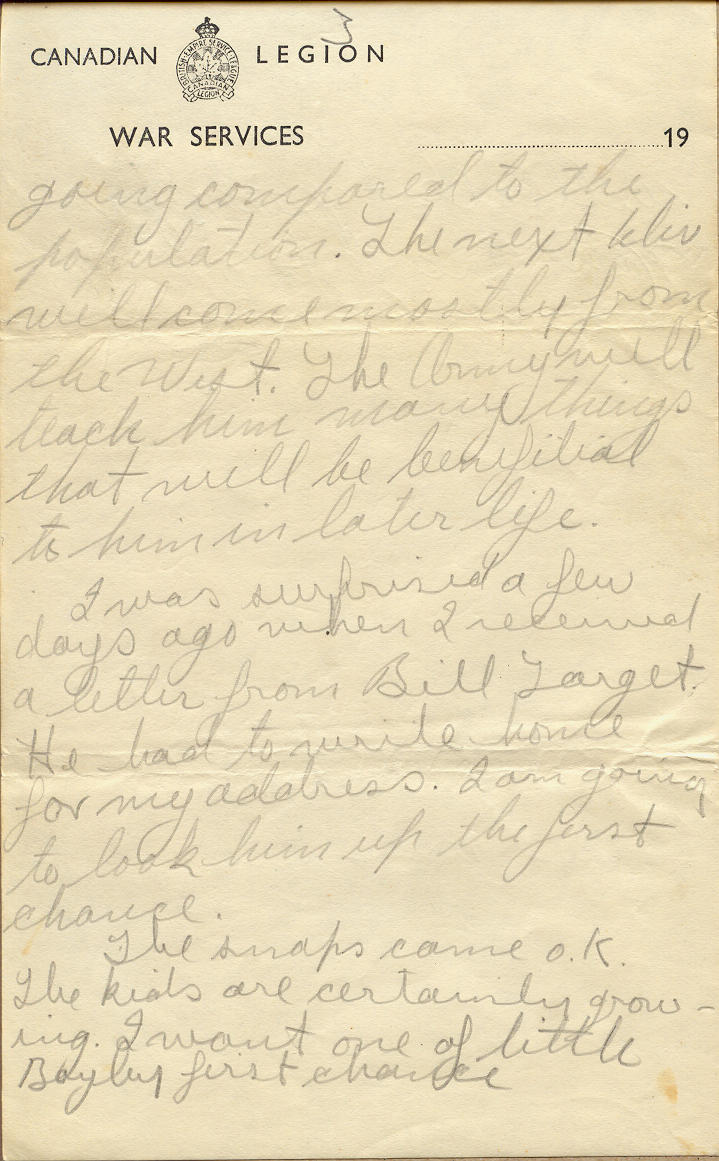 3
CANADIAN LEGION
BRITISH EMPIRE SERVICE LEAGUE
CANADIAN
LEGION
WAR SERVICES 19
going compared to the
population. The next
will come mostly from
the West. The Army will
teach him many things
that will be benifitial
to him in later life.
I was surprised a few
days ago when I received
a letter from Bill Target.
He had to write home
for my address. I am going
to look him up the first
chance.
The snaps came O.K.
The kids are certainly grow-
ing. I want one of little
first chance